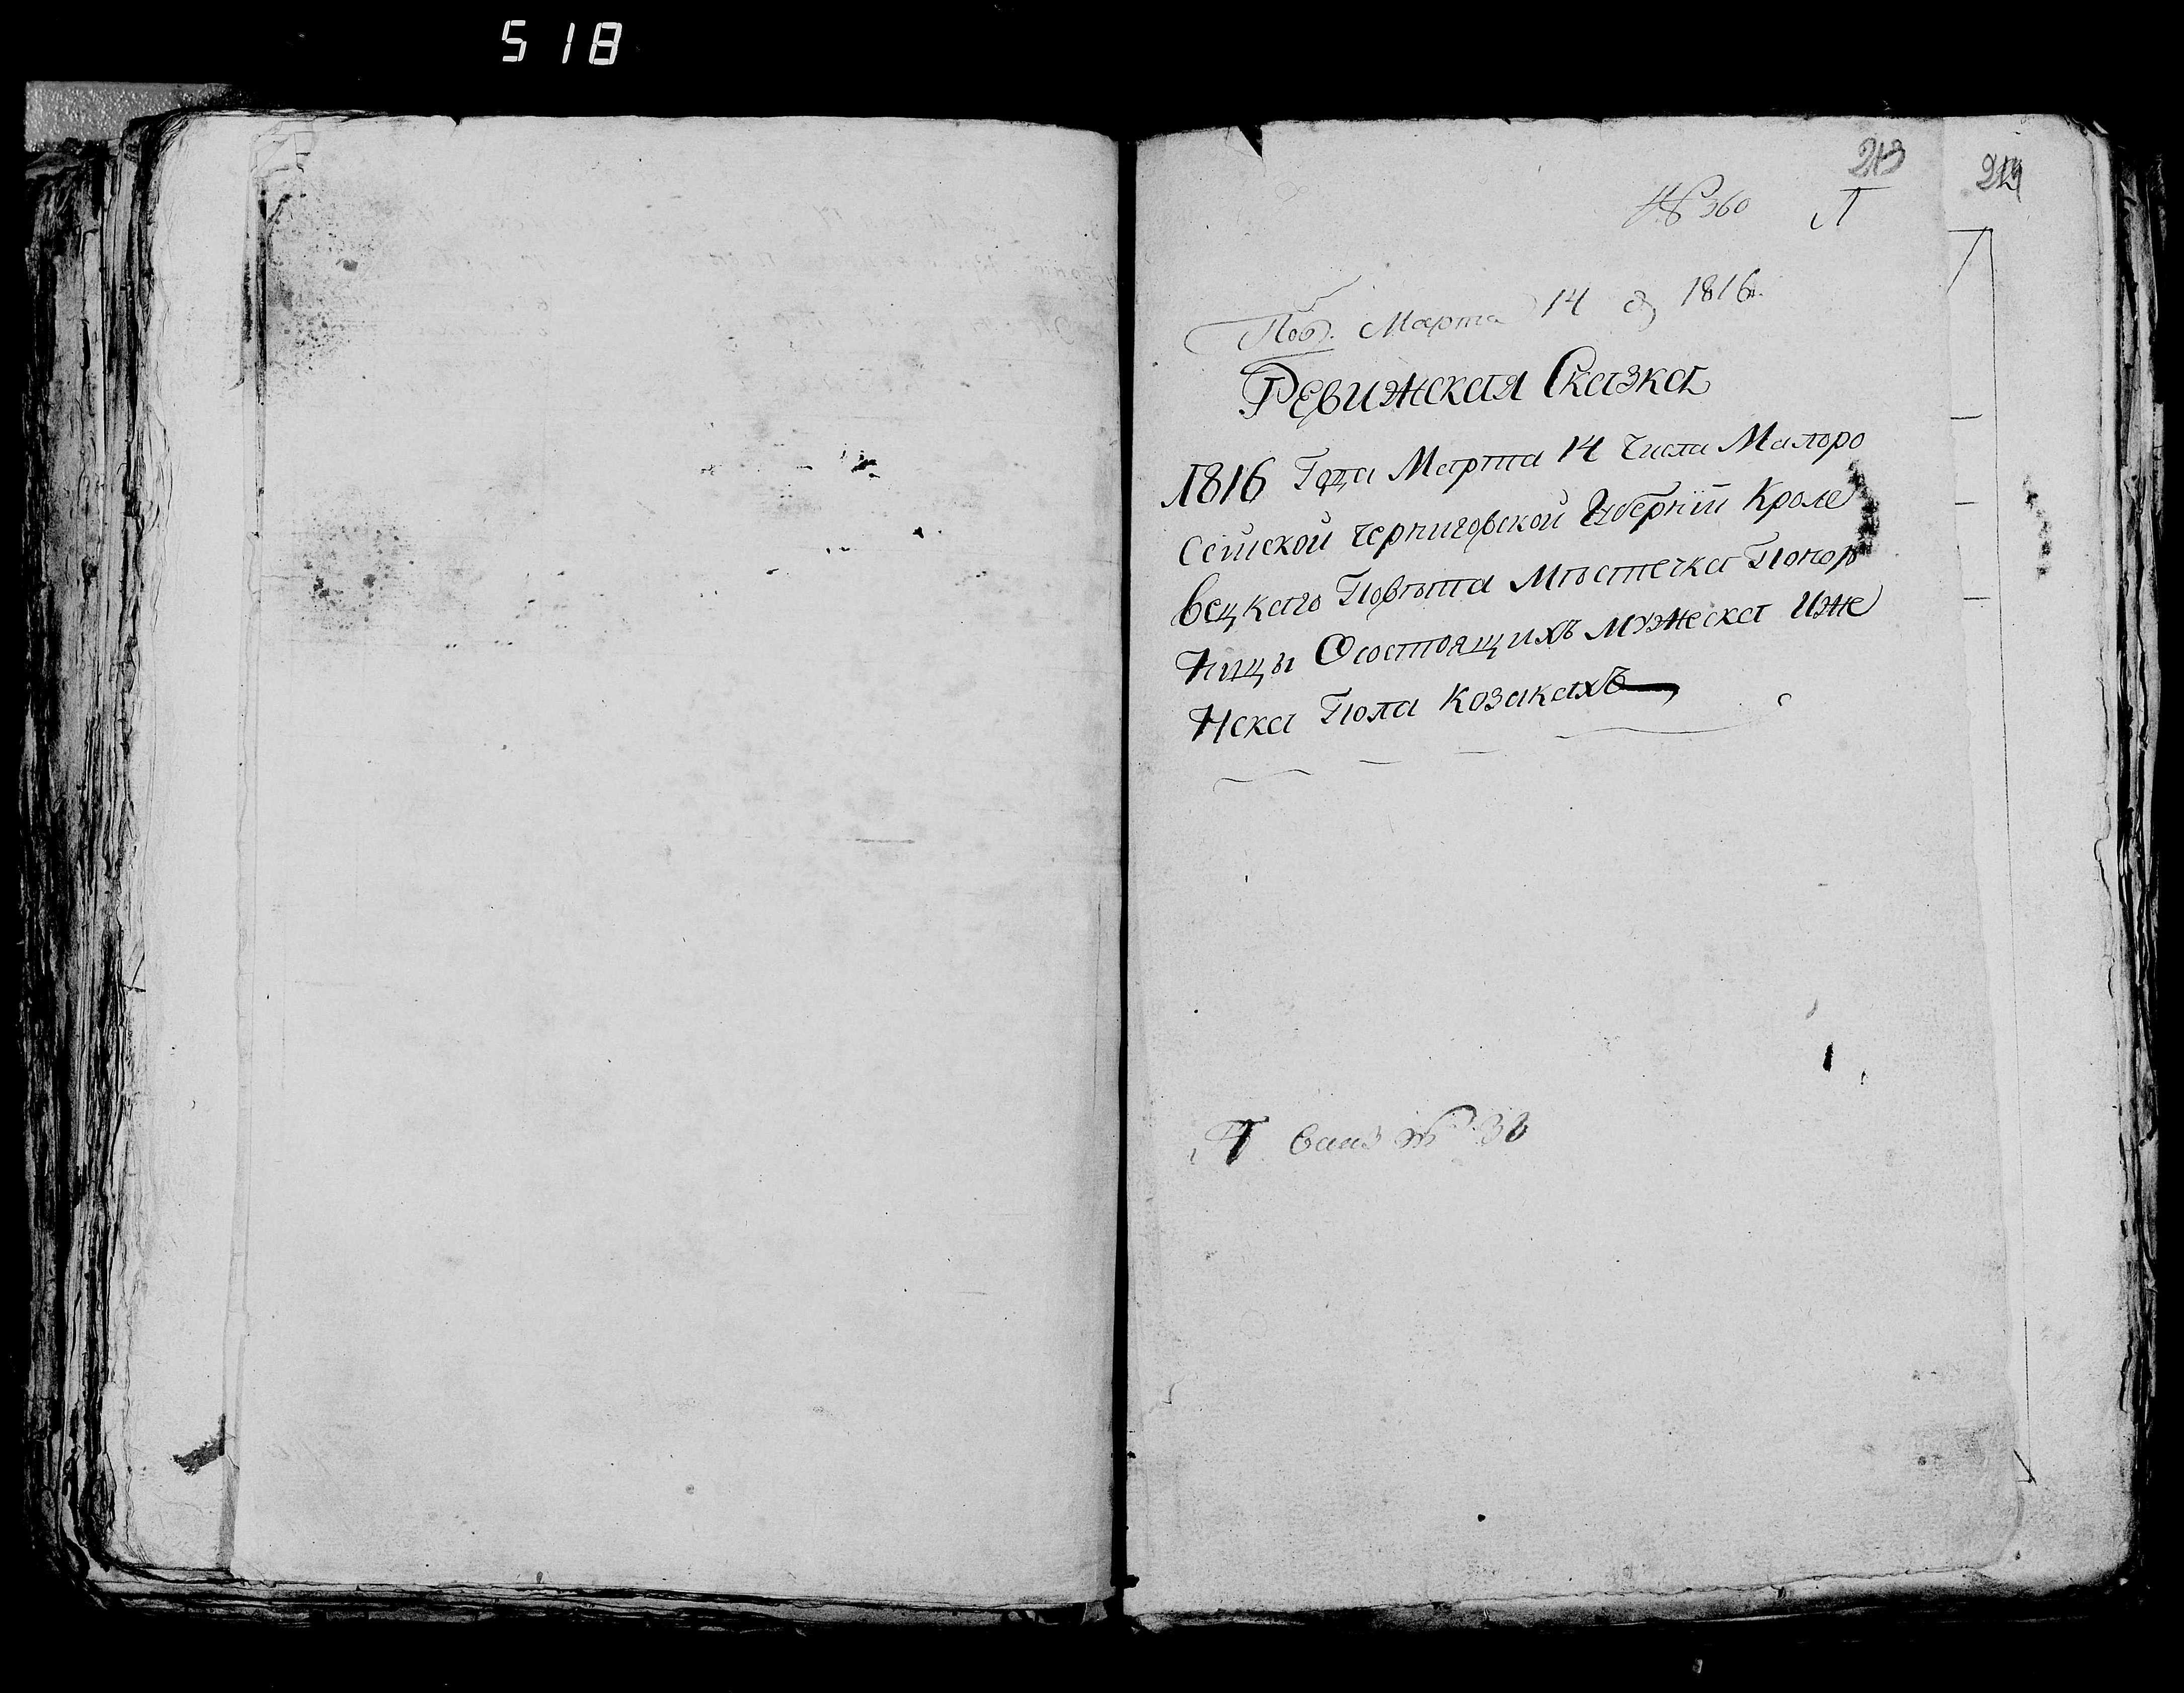 518
213
219
№ 360
Л
Под. Марта 14 д 1816.
Ревижская Сказка
1816 Года Марта 14 Числа Малоро
Сейской Черниговской Губерніи Кроле
вецкаго Повѣта Мѣстечка Понор
ницы Осостоящихъ Мужеска Иже
Нска Пола Козакахъ
№ 38